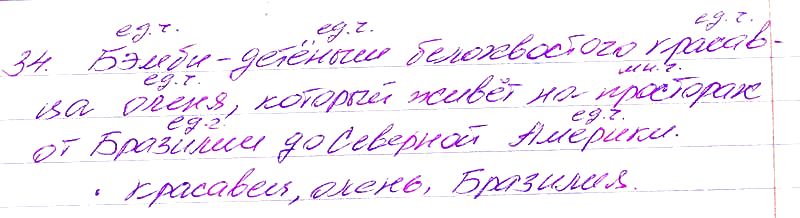 ед.ч. ед.ч. ед.ч.
34. Бэмби - детёныш белохвостого красав-
ед.ч. мн.ч.
ца оленя, который живёт на просторах
ед.ч. ед.ч.
от Бразилии до Северной Америки.
. красавец, олень, Бразилия.